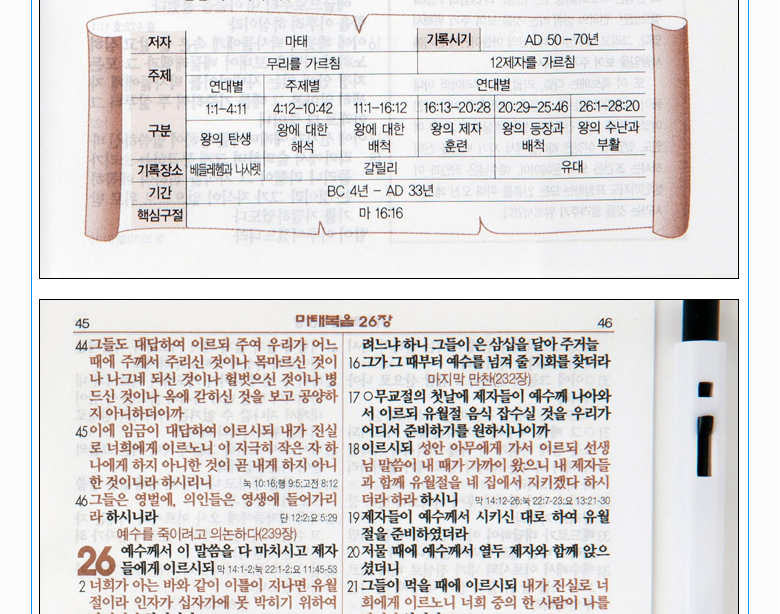 저자 마태 기록시기 AD 50-70년
주제 무리를 가르침 12제자를 가르침
연대별 주제별 연대별
구분 1:1-4:11 4:12-10:42 11:1-16:12 16:13-20:28 20:29-25:46 26:1-28:20
왕의 탄생 왕에 대한 해석 왕에 대한 배척 왕의 제자 훈련 왕의 등장과 배척 왕의 수난과 부활
기록장소 베들레헴과 나사렛 갈릴리 유대
기간 BC 4년 - AD 33년
핵심구절 마 16:16
45 마태복음 26장 46
44 그들도 대답하여 이르되 주여 우리가 어느
때에 주께서 주리신 것이나 목마르신 것이
나 나그네 되신 것이나 헐벗으신 것이나 병
드신 것이나 옥에 갇히신 것을 보고 공양하
지 아니하더이까
45 이에 임금이 대답하여 이르시되 내가 진실
로 너희에게 이르노니 이 지극히 작은 자 하
나에게 하지 아니한 것이 곧 내게 하지 아니
한 것이니라 하시리니 눅 10:16;행 9:5;고전 8:12
46 그들은 영벌에, 의인들은 영생에 들어가리
라 하시니라 단 12:2;요 5:29
예수를 죽이려고 의논하다(239장)
26 예수께서 이 말씀을 다 마치시고 제자
들에게 이르시되 막 14:1-2;눅 22:1-2;요 11:45-53
2 너희가 아는 바와 같이 이틀이 지나면 유월
절이라 인자가 십자가에 못 박히기 위하여
려느냐 하니 그들이 은 삼십을 달아 주거늘
16 그가 그 때부터 예수를 넘겨 줄 기회를 찾더라
마지막 만찬(232장)
17 ○무교절의 첫날에 제자들이 예수께 나아와
서 이르되 유월절 음식 잡수실 것을 우리가
어디서 준비하기를 원하시나이까
18 이르시되 성안 아무에게 가서 이르되 선생
님 말씀이 내 때가 가까이 왔으니 내 제자들
과 함께 유월절을 네 집에서 지키겠다 하시
더라 하라 하시니 막 14:12-26;눅 22:7-23;요 13:21-30
19 제자들이 예수께서 시키신 대로 하여 유월
절을 준비하였더라
20 저물 때에 예수께서 열두 제자와 함께 앉으
셨더니
21 그들이 먹을 때에 이르시되 내가 진실로 너
희에게 이르노니 너희 중의 한 사람이 나를